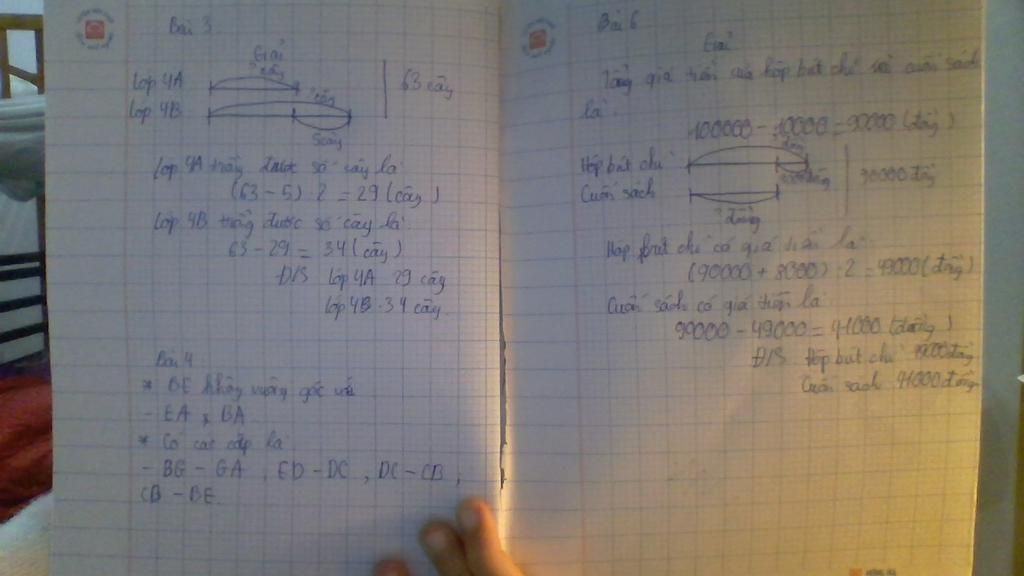 Bài 3
Giải
? cây
Lớp 4A
63 cây
? cây
Lớp 4B
5 cây
Lớp 4A trồng được số cây là:
(63 - 5) : 2 = 29 (cây)
Lớp 4B trồng được số cây là:
63 - 29 = 34 (cây)
Đ/S Lớp 4A: 29 cây
Lớp 4B: 34 cây
Bài 4
* BE không vuông góc với
- EA, BA
* Có các cặp là
- BG - GA, ED - DC, DC - CB,
CB - BE.
Bài 6
Giải
Tổng giá tiền của hộp bút chì và cuốn sách
là:
100000 - 10000 = 90000 (đồng)
Hộp bút chì
8000 đồng
90000 đồng
Cuốn sách
? đồng
Hộp bút chì có giá tiền là:
(90000 + 8000) : 2 = 49000 (đồng)
Cuốn sách có giá tiền là:
90000 - 49000 = 41000 (đồng)
Đ/S Hộp bút chì 49000 đồng
Cuốn sách 41000 đồng